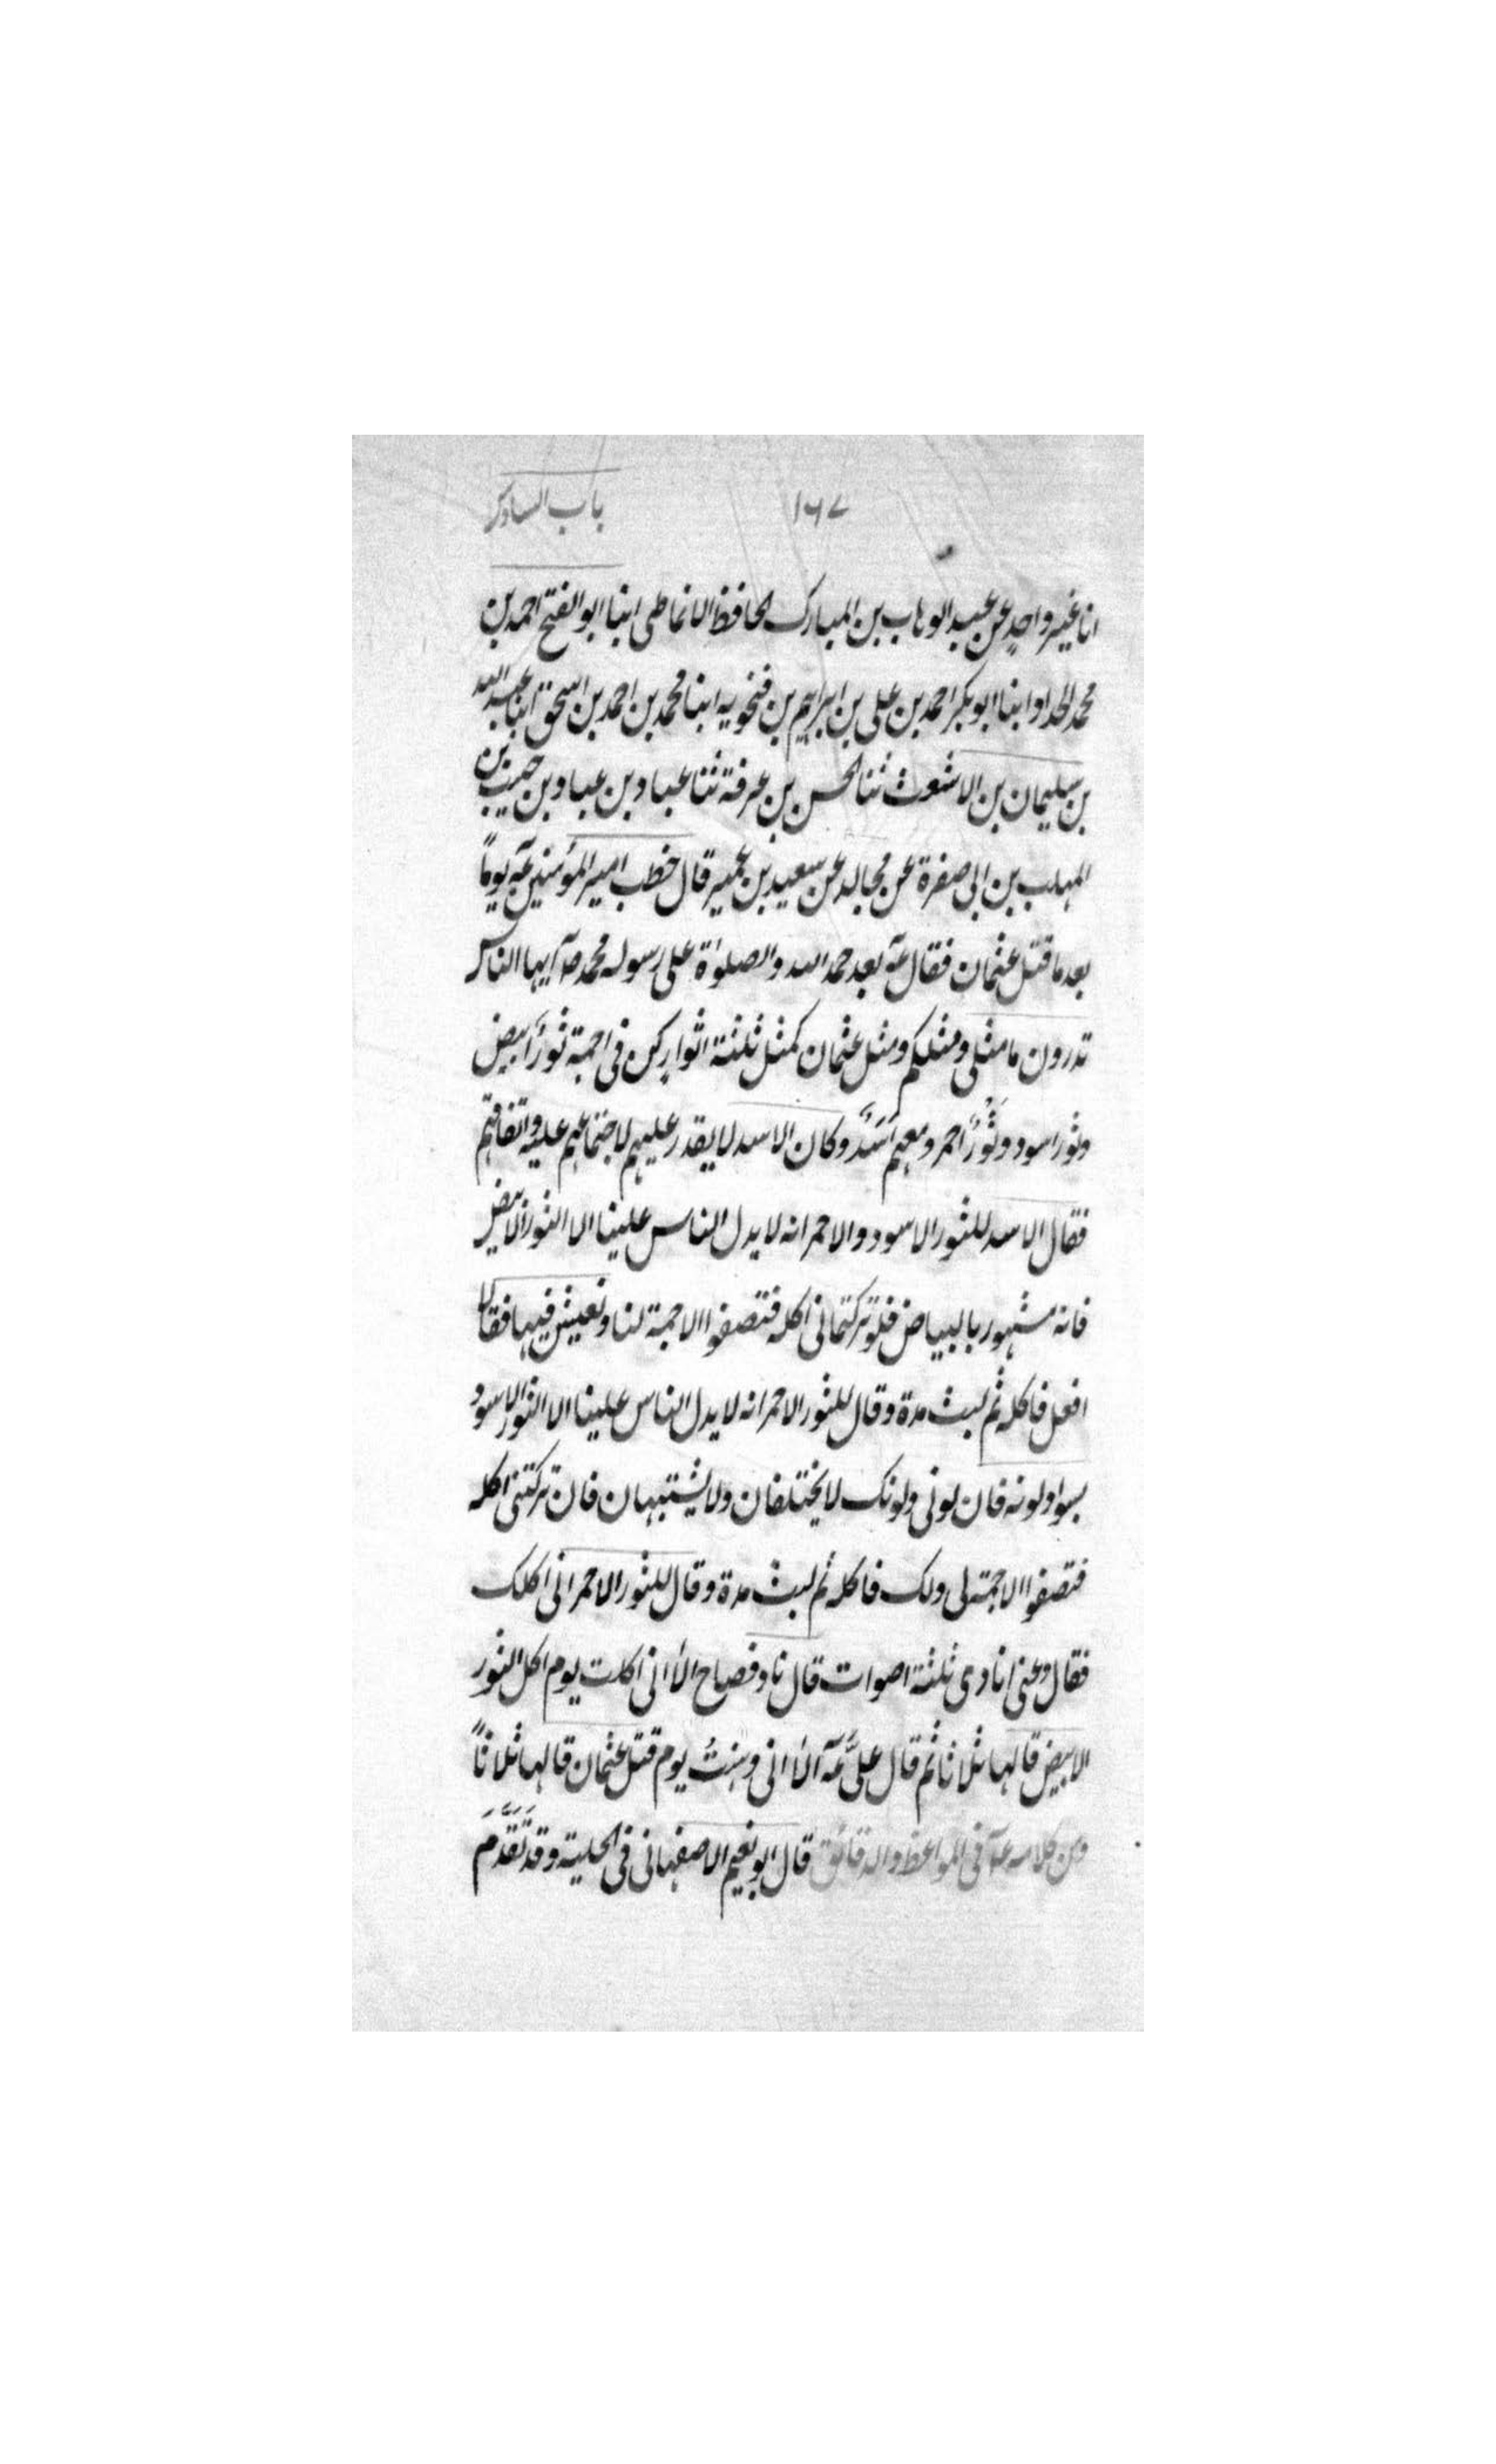 ۱۶۷ باب السادس
انا غير واحد عن عبد الوهاب بن المبارك الحافظ الانماطى ابنا ابو الفتح احمد بن
محمد الحداد ابنا ابو بكر احمد بن على بن ابراهيم بن فنجويه ابنا محمد بن احمد بن اسحق ابنا عبد الله
بن سليمان بن الاشعث ثنا الحسن بن عرفة ثنا عباد بن عباد بن حبيب بن
المهلب بن ابى صفرة عن مجالد عن سعيد بن عمير قال خطب امير المؤمنين عم يوماً
بعد ما قتل عثمان فقال عم بعد حمد الله والصلوٰة على رسوله محمد صلم ايها الناس
تدرون ما مثلى ومثلكم ومثل عثمان كمثل ثلثة اثوار كن فى اجمة ثور ابيض
وثور اسود وثَوْرٌ احمر ومعهم اَسَدٌ وكان الاسد لا يقدر عليهم لاجتماعهم عليه واتفاقهم
فقال الاسد للثور الاسود والاحمر انه لا يدل الناس علينا الا الثور الابيض
فانه مشهور بالبياض فلو تركتمانى اكله فتصفوا الاجمة لنا ونعيش فيها فقالا
افعل فاكله ثم لبث مدة وقال للثور الاحمر انه لا يدل الناس علينا الا الثور الاسود
بسواد لونه فان لونى ولونك لا يختلفان ولا يشتبهان فان تركتنى اكله
فتصفوا الاجمة لى ولك فاكله ثم لبث مدة وقال للثور الاحمر انى اكلك
فقال دعنى انادى ثلثة اصوات قال ناد فصاح الا انى اكلت يوم اكل الثور
الابيض قالها ثلاثا ثم قال علىٌّ عم الا انى وهنتُ يوم قتل عثمان قالها ثلاثاً
ومن كلامه عم فى المواعظ والدقائق قال ابو نعيم الاصفهانى فى الحلية وقد تَقَدَّمَ